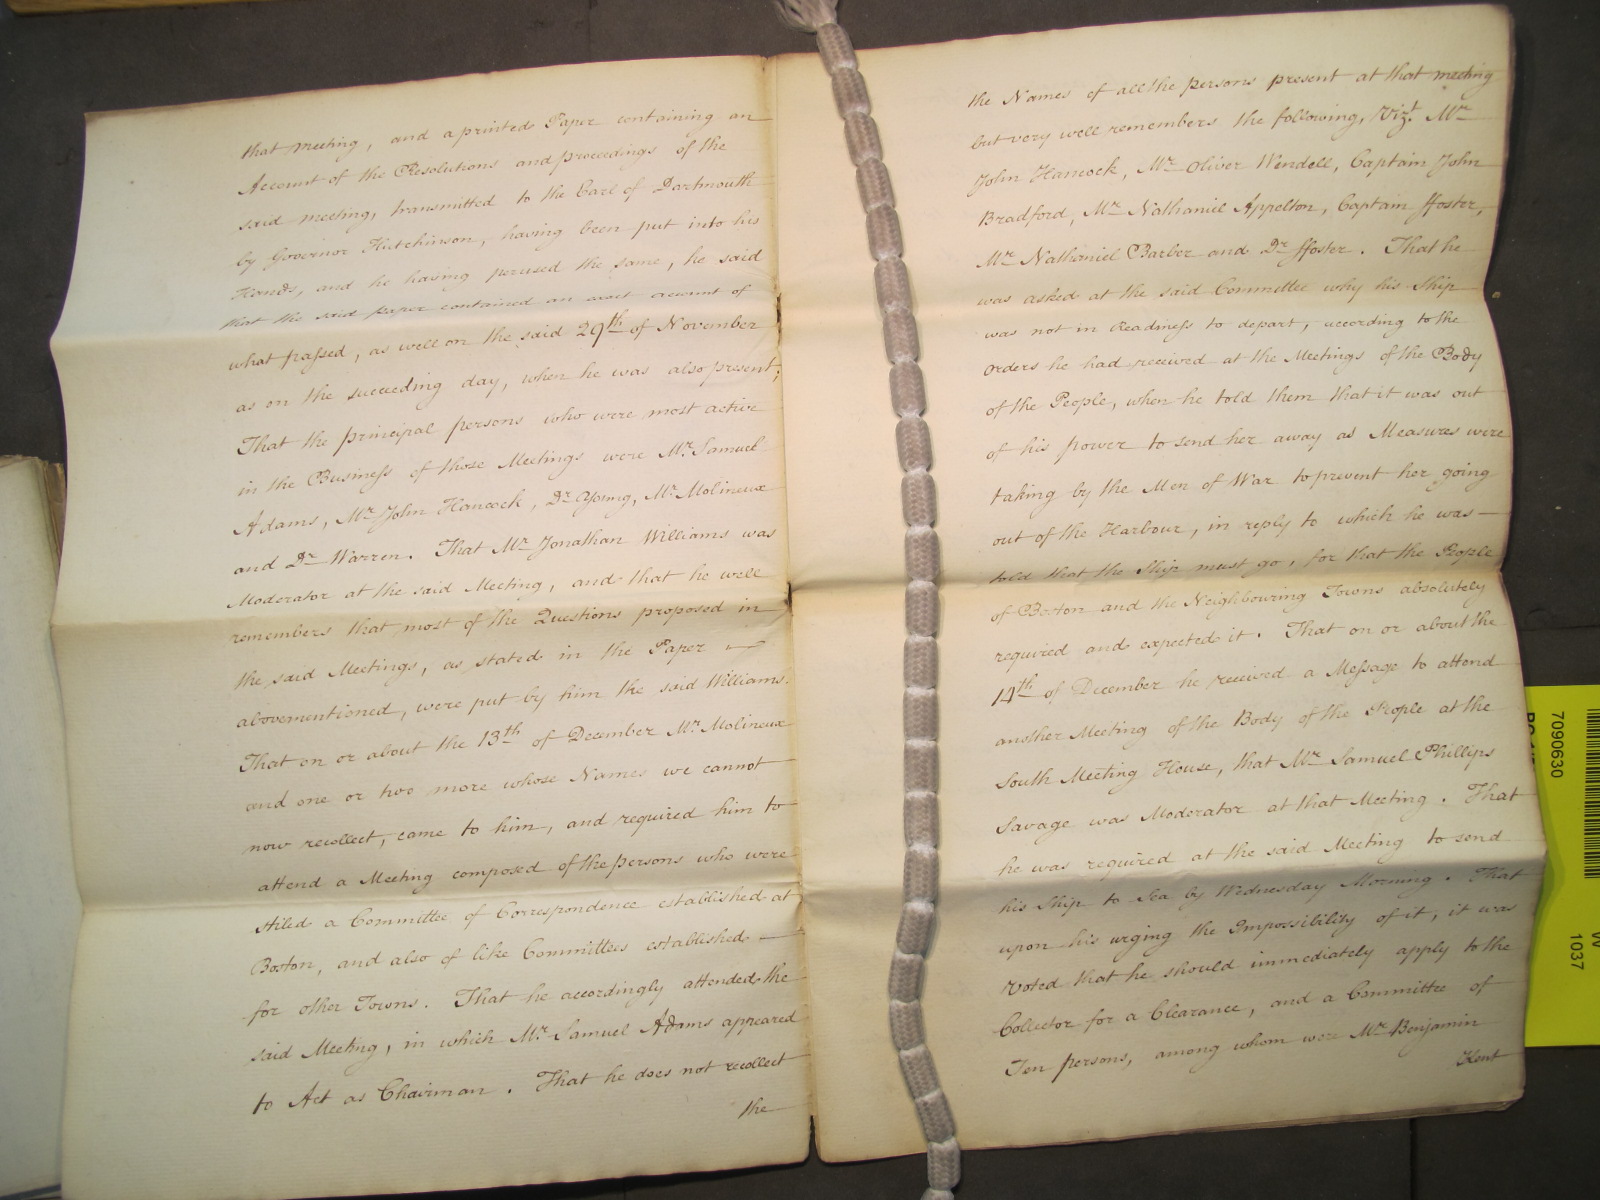 that meeting, and a printed Paper containing an
Account of the Resolutions and proceedings of the
said meeting, transmitted to the Earl of Dartmouth
by Governor Hutchinson, having been put into his
Hands, and he having perused the same, he said
that the said paper contained an exact account of
what passed, as well on the said 29th of November
as on the succeeding day, when he was also present;
That the principal persons who were most active
in the Business of those Meetings were Mr. Samuel
Adams, Mr John Hancock, Dr Young, Mr Molineux
and Dr Warren. That Mr Jonathan Williams was
Moderator at the said Meeting, and that he well
remembers that most of the Questions proposed in
the said Meetings, as stated in the Paper
abovementioned, were put by him the said Williams.
That on or about the 13th of December Mr Molineux
and one or two more whose Names we cannot
now recollect, came to him, and required him to
attend a Meeting composed of the persons who were
stiled a Committee of Correspondence established at
Boston, and also of like Committees established
for other Towns. That he accordingly attended the
said Meeting, in which Mr. Samuel Adams appeared
to Act as Chairman. That he does not recollect
the
the Names of all the persons present at that meeting
but very well remembers the following, Vizt. Mr
John Hancock, Mr Oliver Wendell, Captain John
Bradford, Mr Nathaniel Appelton, Captain ffoster,
Mr Nathaniel Barber and Dr ffoster. That he
was asked at the said Committee why his Ship
was not in Readiness to depart, according to the
Orders he had received at the Meetings of the Body
of the People, when he told them that it was out
of his power to send her away as Measures were
taking by the Men of War to prevent her going
out of the Harbour, in reply to which he was
told that the Ship must go, for that the People
of Boston and the Neighbouring Towns absolutely
required and expected it. That on or about the
14th of December he received a Message to attend
another Meeting of the Body of the People at the
South Meeting House, that Mr Samuel Phillips
Savage was Moderator at that Meeting. That
he was required at the said Meeting to send
his Ship to Sea by Wednesday Morning. That
upon his urging the Impossibility of it, it was
Voted that he should immediately apply to the
Collector for a Clearance, and a Committee of
Ten persons, among whom were Mr Benjamin
Kent
7090630
1037